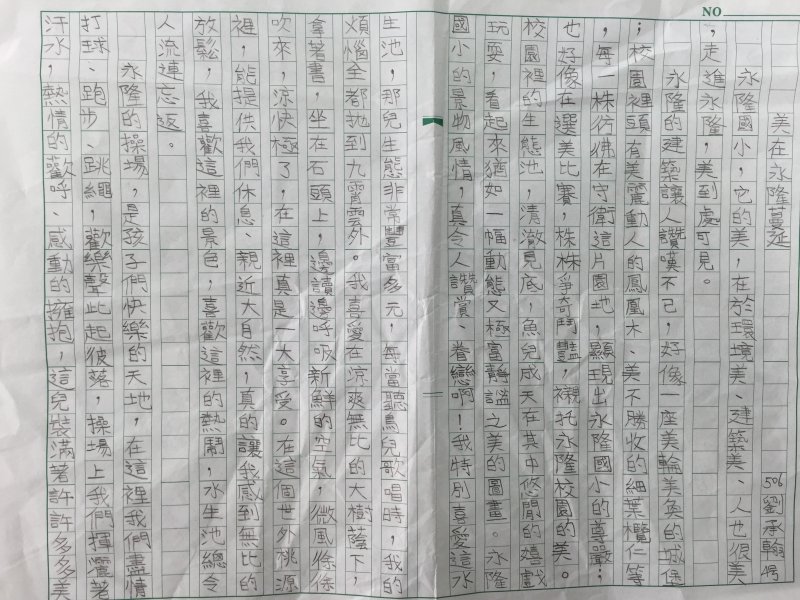 NO
美在永隆蔓延 506 劉承翰
永隆國小，它的美，在於環境美、建築美、人也很美
，走進永隆，美到處可見。
永隆的建築讓人讚嘆不已，好像一座美輪美奐的城堡
；校園裡頭有美麗動人的鳳凰木、美不勝收的細葉欖仁等
，每一株彷彿在守衛這片園地，顯現出永隆國小的尊嚴；
也好像在選美比賽，株株爭奇鬥豔，襯托永隆校園的美。
校園裡的生態池，清澈見底，魚兒成天在其中悠閒的嬉戲
玩耍，看起來猶如一幅動態又極富靜謐之美的圖畫。永隆
國小的景物風情，真令人讚賞、眷戀啊！我特別喜愛這水
生池，那兒生態非常豐富多元，每當聽鳥兒歌唱時，我的
煩惱全都拋到九霄雲外。我喜愛在涼爽無比的大樹蔭下，
拿著書，坐在石頭上，邊讀邊呼吸新鮮的空氣，微風徐徐
吹來，涼快極了，在這裡真是一大享受。在這個世外桃源
裡，能提供我們休息、親近大自然，真的讓我感到無比的
放鬆，我喜歡這裡的景色，喜歡這裡的熱鬧，水生池總令
人流連忘返。
永隆的操場，是孩子們快樂的天地，在這裡我們盡情
打球、跑步、跳繩，歡樂聲此起彼落，操場上我們揮灑著
汗水，熱情的歡呼、感動的擁抱，這兒裝滿著許許多多美